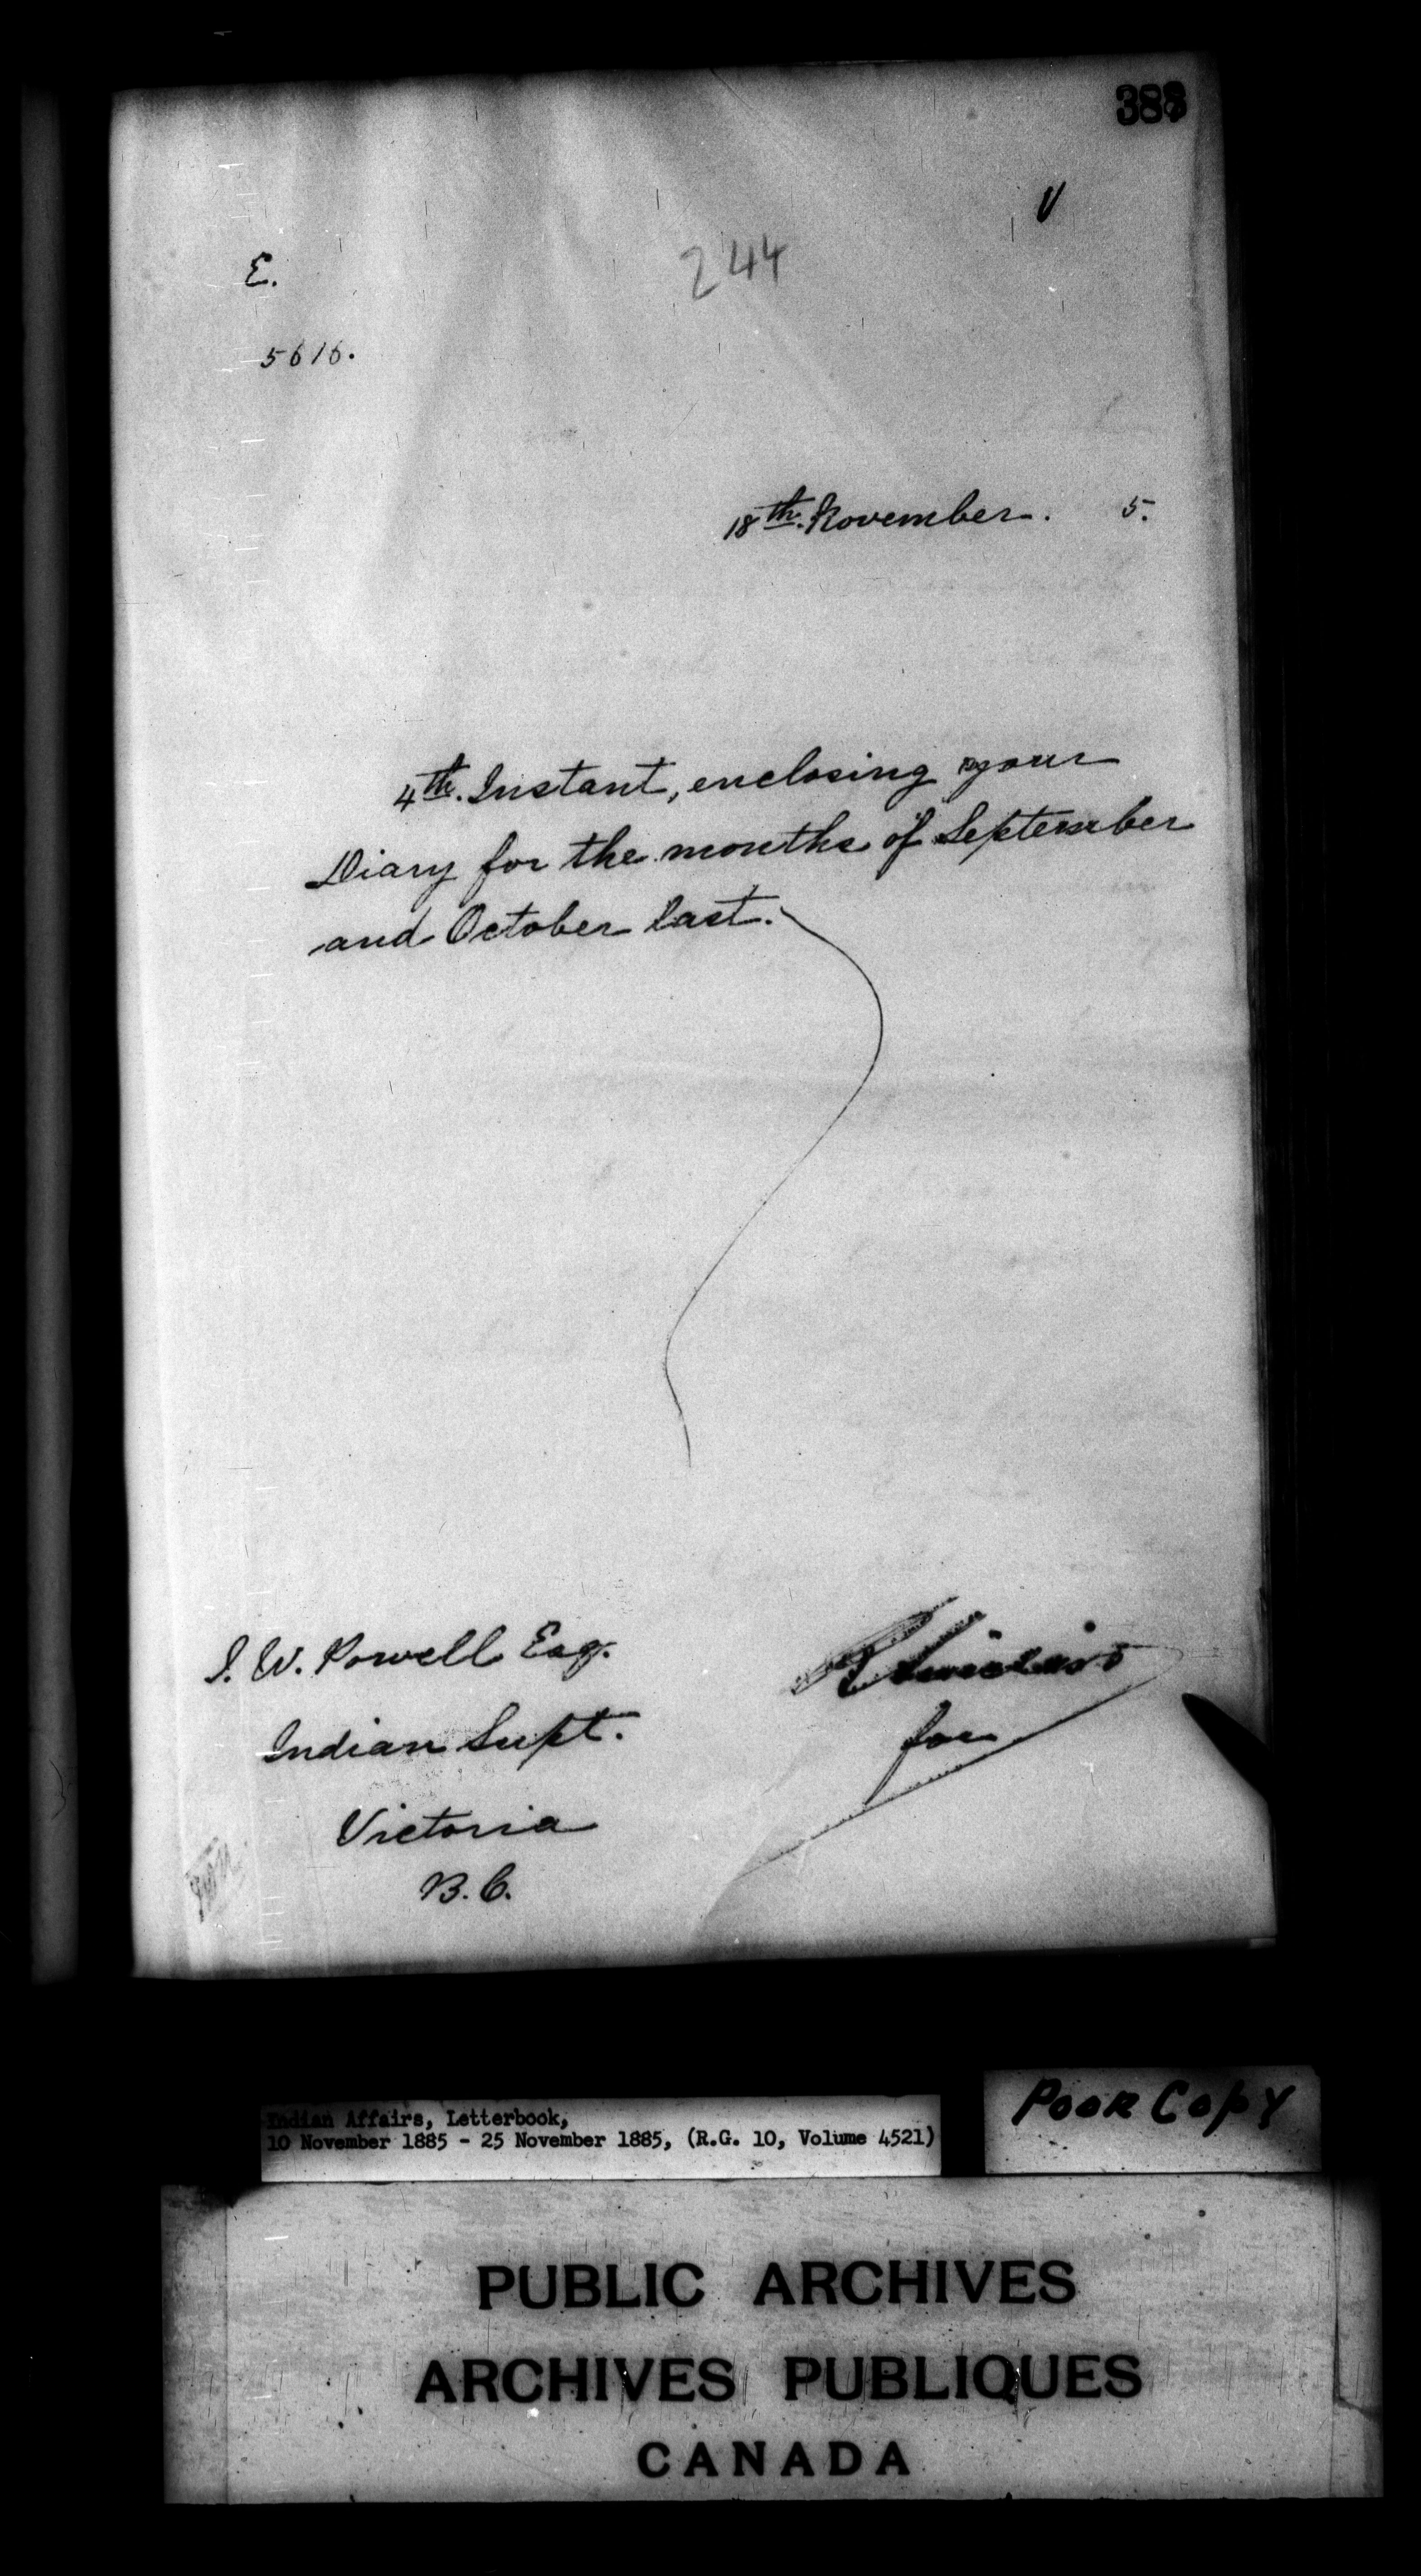 V
244
E.
5616.
18th November. 5.
4th Instant, enclosing your
Diary for the months of September
and October last.
I. W. Powell Esq.
Indian Supt.
Victoria
B.C.
for
Indian Affairs, Letterbook,
10 November 1885 - 25 November 1885, (R.G. 10, Volume 4521)
POOR COPY
PUBLIC ARCHIVES
ARCHIVES PUBLIQUES
CANADA